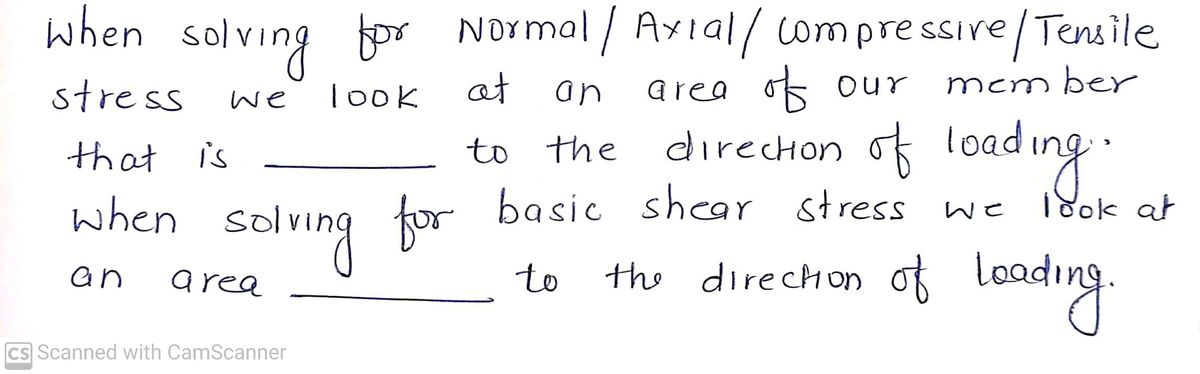 When solving for Normal / Axial / compressive / Tensile
stress we look at an area of our member
that is ________ to the direction of loading.
When solving for basic shear stress we look at
an area ________ to the direction of loading.
CS Scanned with CamScanner